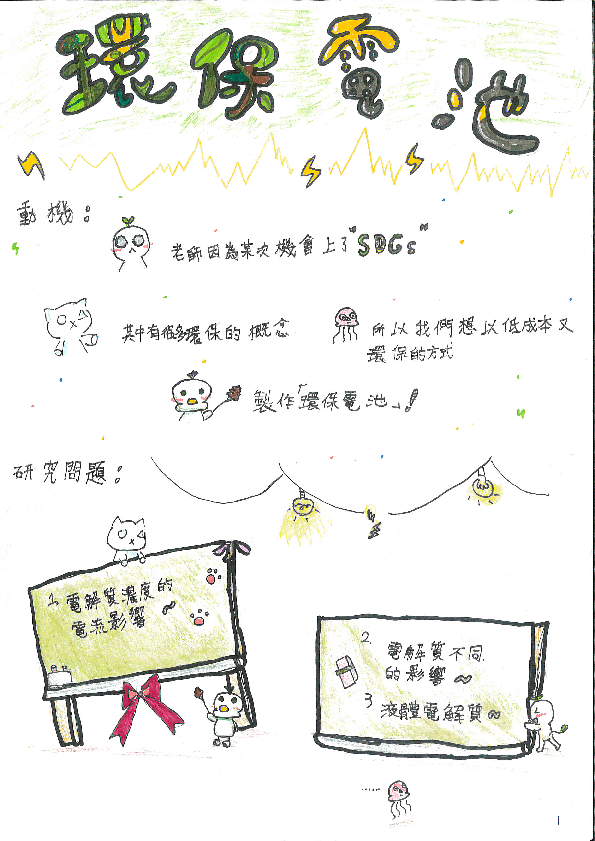 環保電池
動機：
老師因為某次機會上了"SDGs"
其中有很多環保的概念
所以我們想以低成本又
環保的方式
製作「環保電池」！
研究問題：
1. 電解質濃度的
電流影響～
2. 電解質不同
的影響～
3 液體電解質～
......
1